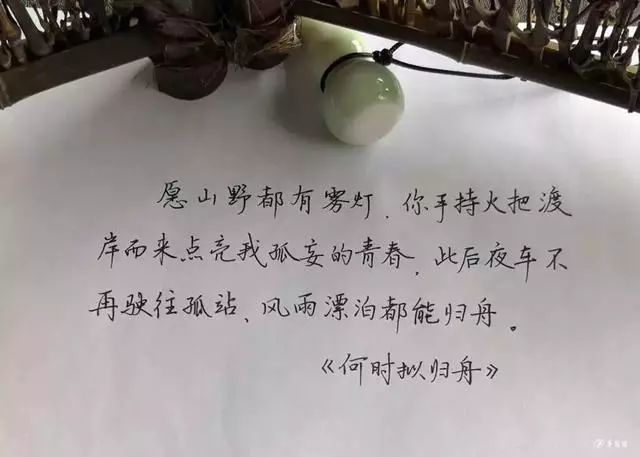 愿山野都有雾灯，你手持火把渡
岸而来点亮我孤妄的青春，此后夜车不
再驶往孤站、风雨漂泊都能归舟。
《何时拟归舟》